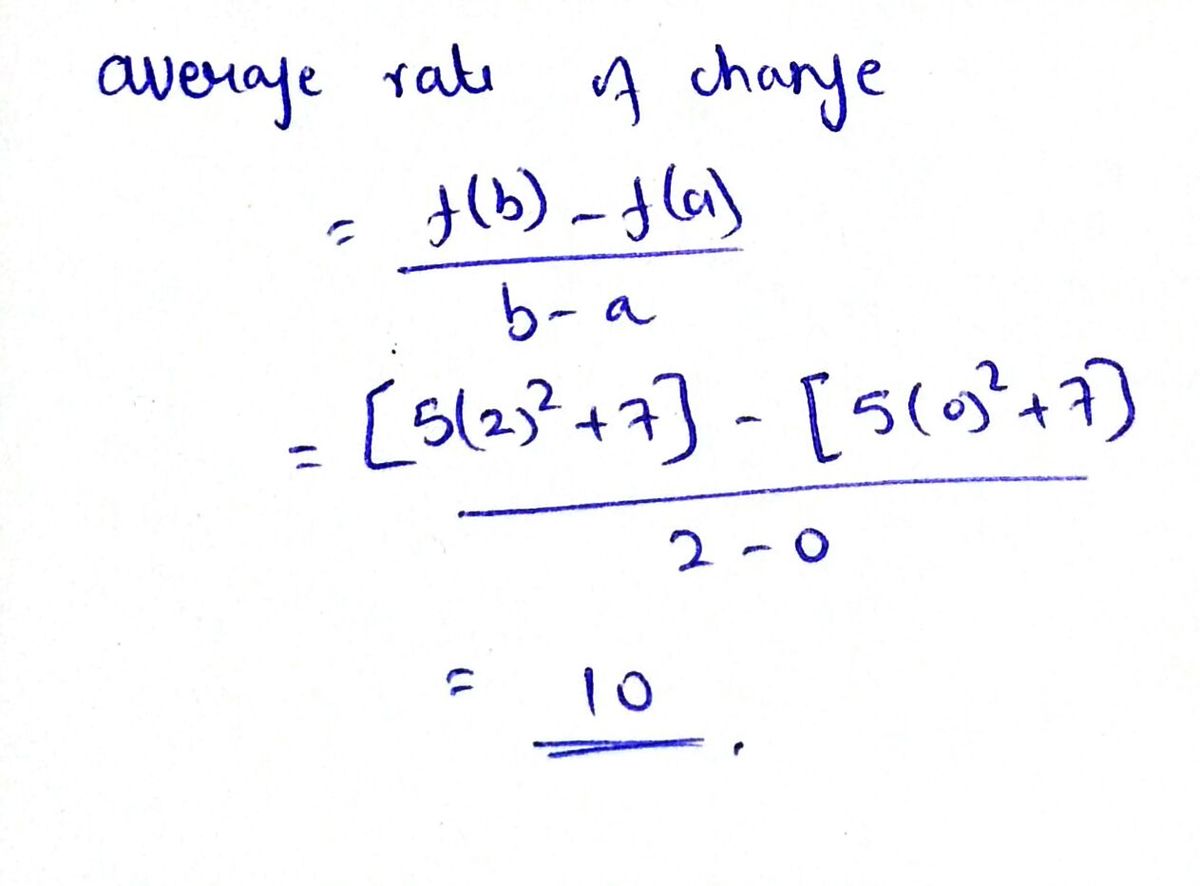 average rate of change
= f(b) - f(a)
b - a
= [5(2)² + 7] - [5(0)² + 7]
2 - 0
= 10.